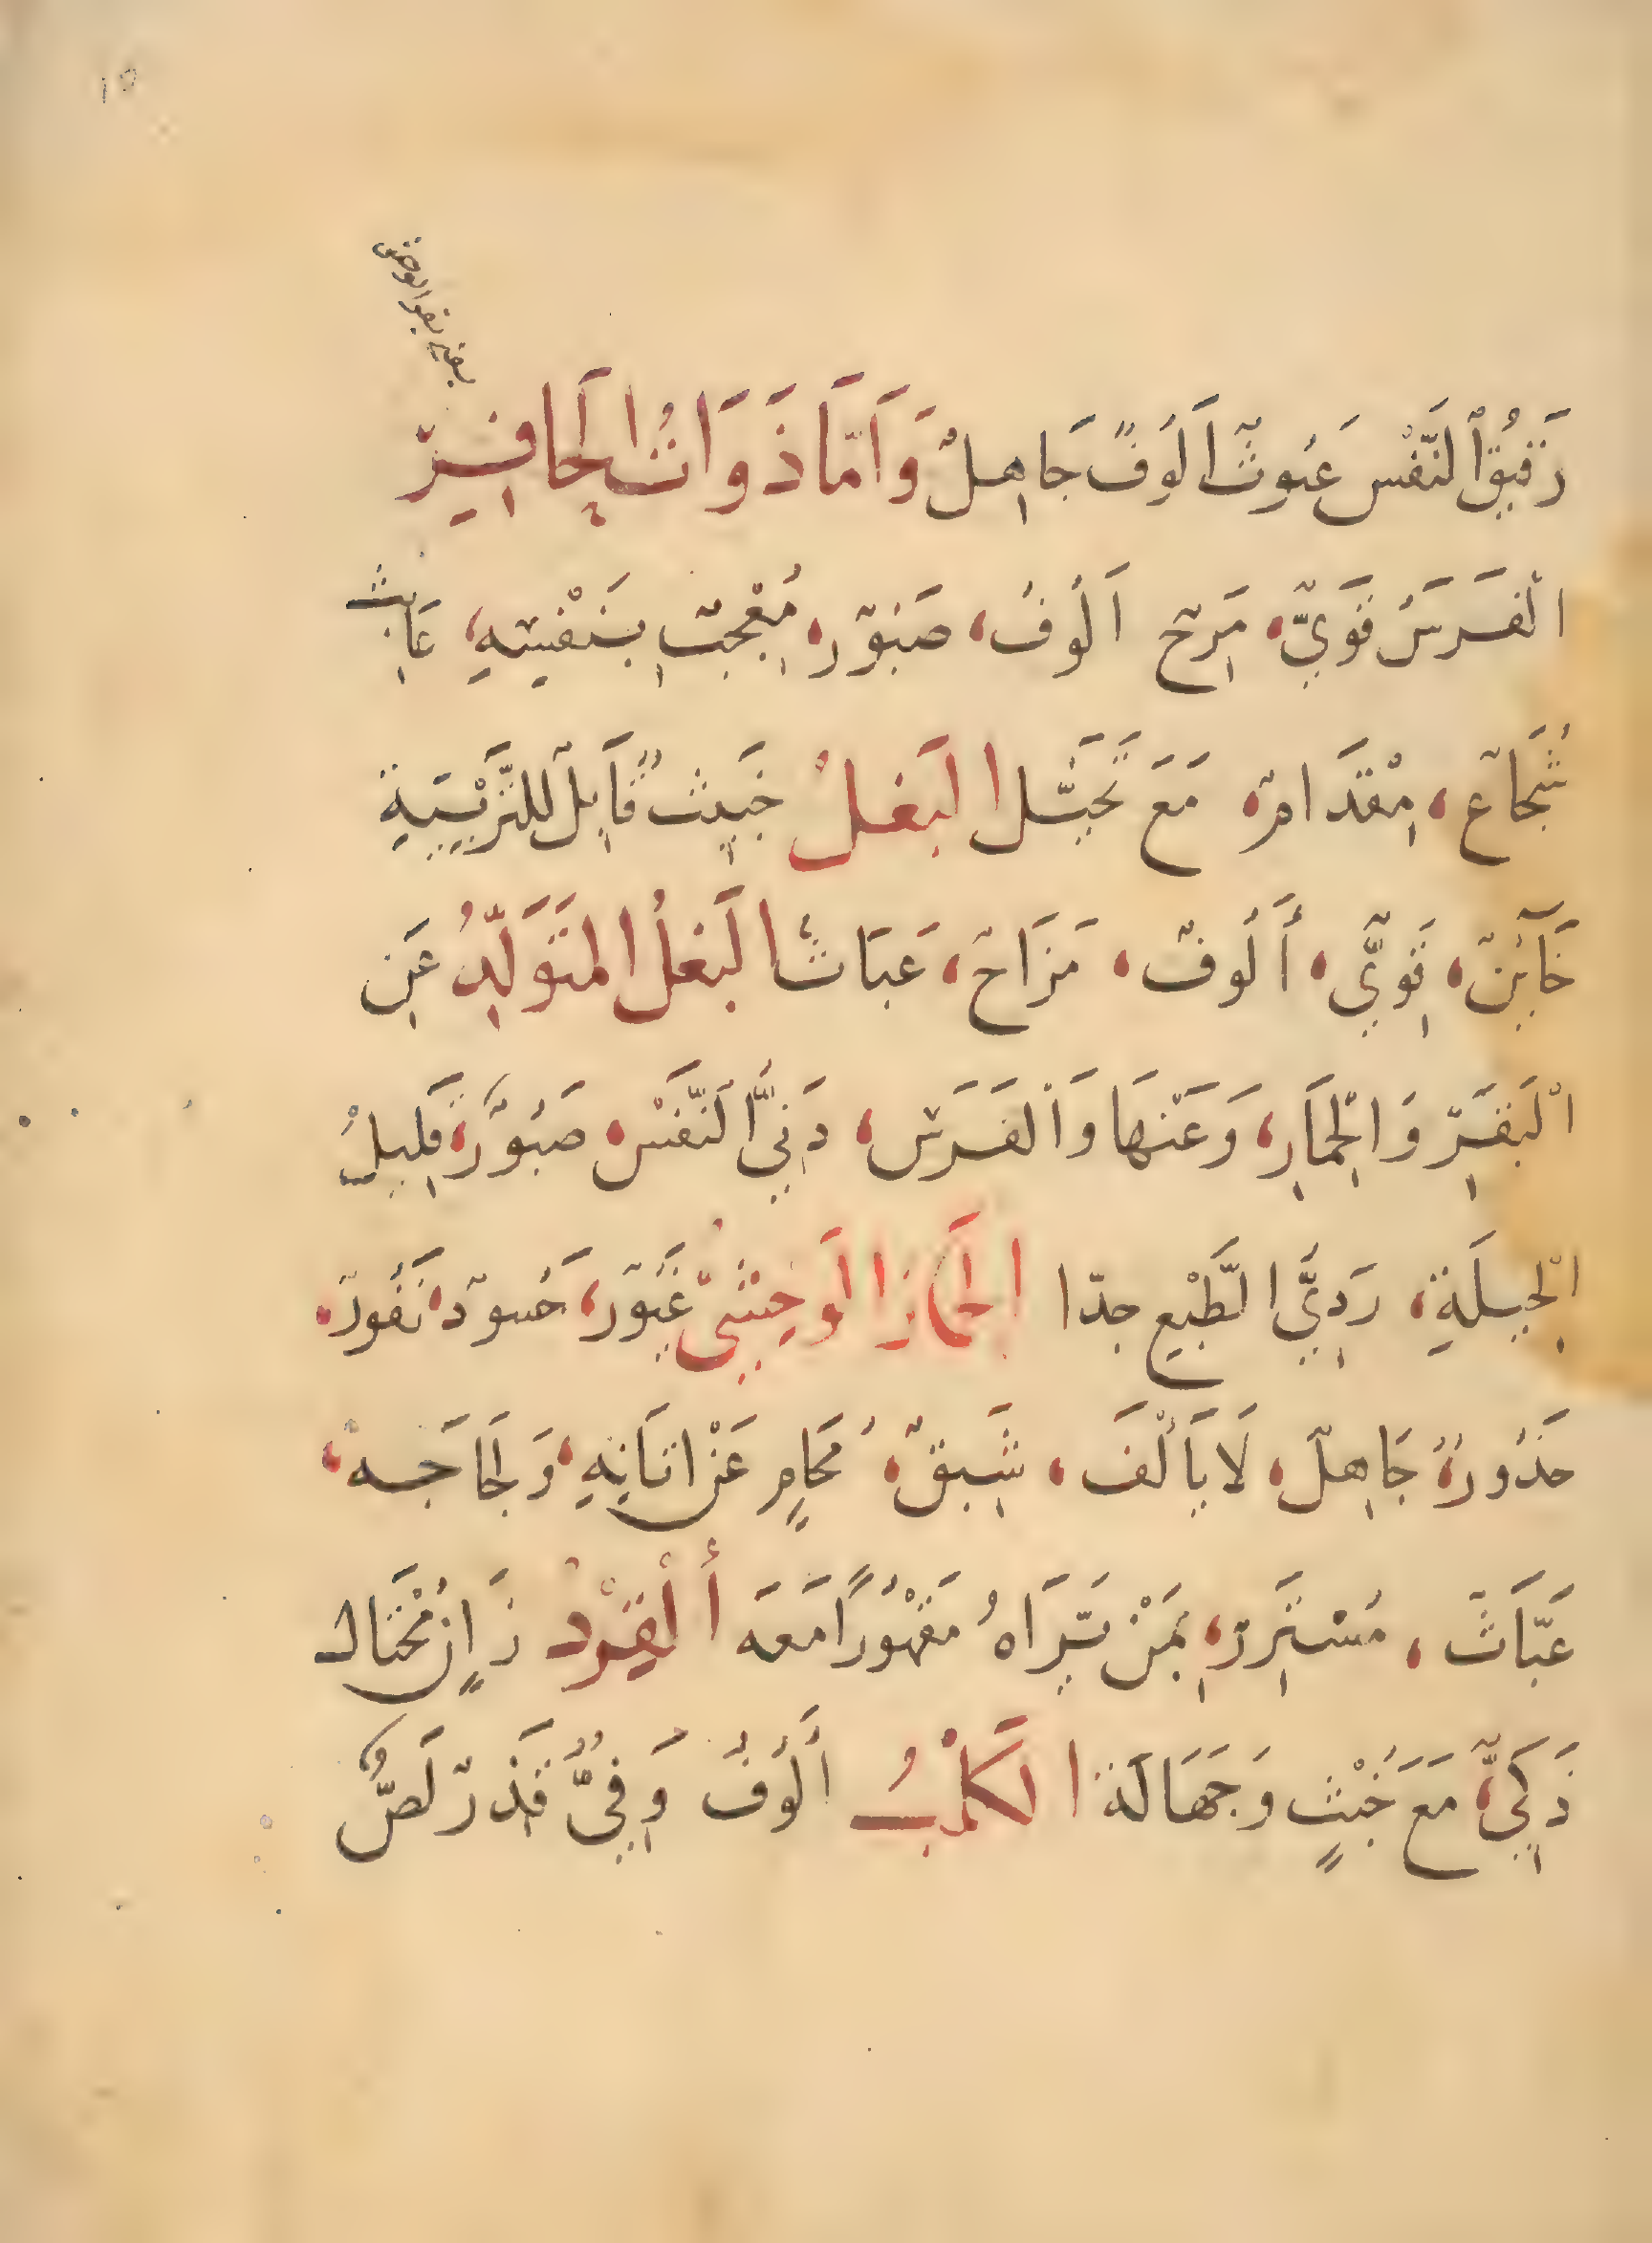 ١٥
رَقِيقُ اْلنَّفْسِ عَبُوثٌ اَلُوفٌ جَاهِلٌ وَاَمَّا ذَوَاتُ الْحَافِرِ
الْفَرَسُ قَوِيٌّ، مَرِحٌ اَلُوفٌ، صَبُوْرٌ، مُعْجِبٌ بِنَفْسِهِ، عَابِثٌ
شُجَاعٌ، مِقْدَامٌ، مَعَ تَخَيُّل البَغلُ خَبِيثٌ قَابِلٌ لِلتَّرْبِيَةِ
خَآئِنٌ، قَوِيٌّ، أَلُوفٌ، مَزَاحٌ، عَبَاثٌ البَغلُ المتَوَلِّدُ عَنِ
اْلبَقَرِ وَاْلحِمَارِ، وَعَنْهَا وَاْلفَرَسِ، دَنِيُّ اْلنَّفَسْ، صَبُوْرٌ، قَلِيلُ
اْلجِبِلَةِ، رَدِيُّ الطَّبْعِ جدّا الحَمارُ الوَحِشْيُّ غَيُوْرٌ، حَسُودٌ، نَفُورٌ،
حَذُورٌ، جَاهِلٌ، لَا يَأْلَفَ، شَبِقٌ، مُحَامٍ عَنْ اتَانِهِ، وَلَجَاجَه،
عَبَّاثٌ، مُسْتَرِرٌ، بِمَنْ يَرَاهُ مَقْهُوْرًا مَعَه أْلقِرْدُ زَانٍ مُخْتَالٌ
ذَكِيٌّ، مَعَ خُبْثٍ وَجَهَالَة الكَلْبُ أَلُوْفٌ وَفِيٌّ قَذِرٌ لَصٌّ